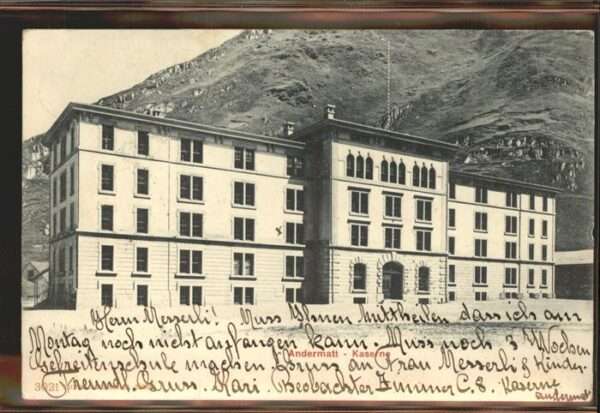 Herrn Messerli! Muss Ihnen Mittheilen dass ich am
Montag noch nicht anfangen kann. Muss noch 3 Wochen
Andermatt - Kaserne
Gefreitenschule machen. Gruss an Frau Messerli & Kinder.
3021 freundl. Gruss. Karl. Beobachter Zimmer C.8. Kaserne
Andermat